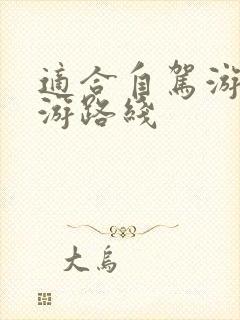 適合自駕游
游路綫
大烏